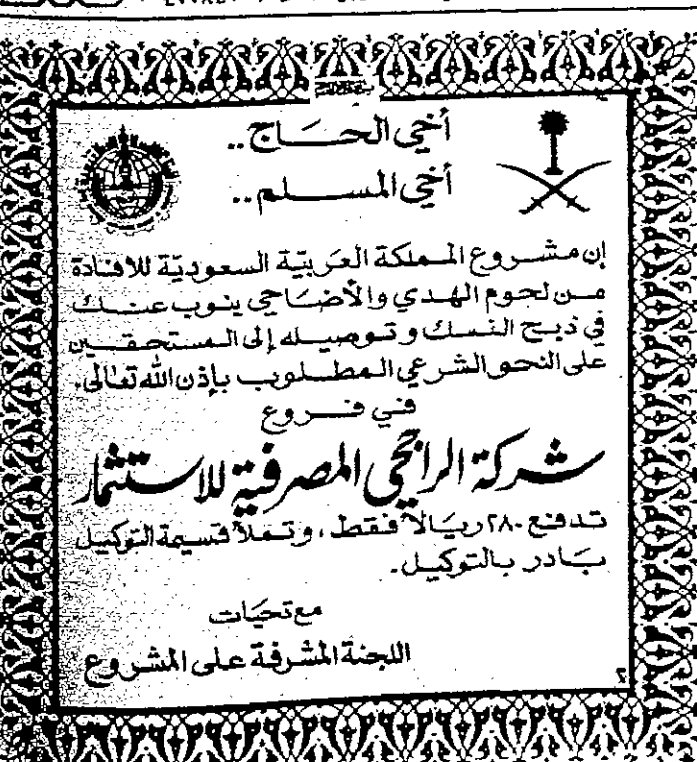 أخي الحاج..
أخي المسلم..
إن مشروع المملكة العربيّة السعوديّة للافادة
من لحوم الهدي والأضاحي ينوب عنك
في ذبح النسك وتوصيله إلى المستحقين
على النحو الشرعي المطلوب بإذن الله تعالى.
في فروع
شركة الراجحي المصرفية للاستثمار
تدفع ٢٨٠ ريالاً فقط، وتملأ قسيمة التوكيل
بادر بالتوكيل.
مع تحيات
اللجنة المشرفة على المشروع
٢